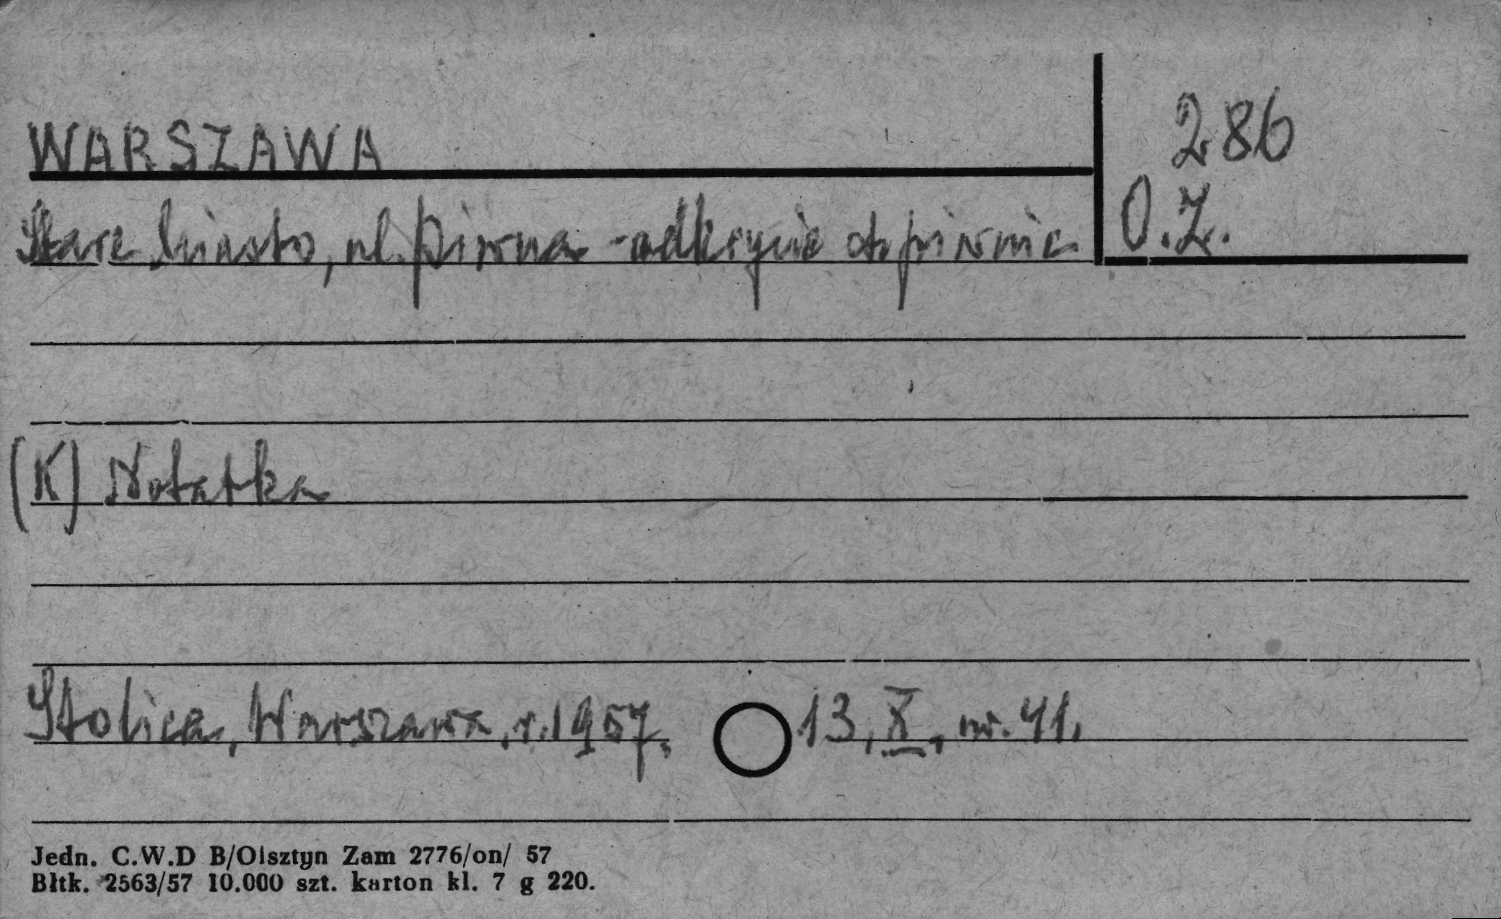 WARSZAWA
286
Stare Miasto, ul. Piwna - odkrycie piwnic
O.Z.
(K) Notatka
Stolica, Warszawa, r. 1957, 13, X, nr. 41.
Jedn. C.W.D B/Olsztyn Zam 2776/on/ 57
Błtk. 2563/57 10.000 szt. karton kl. 7 g 220.